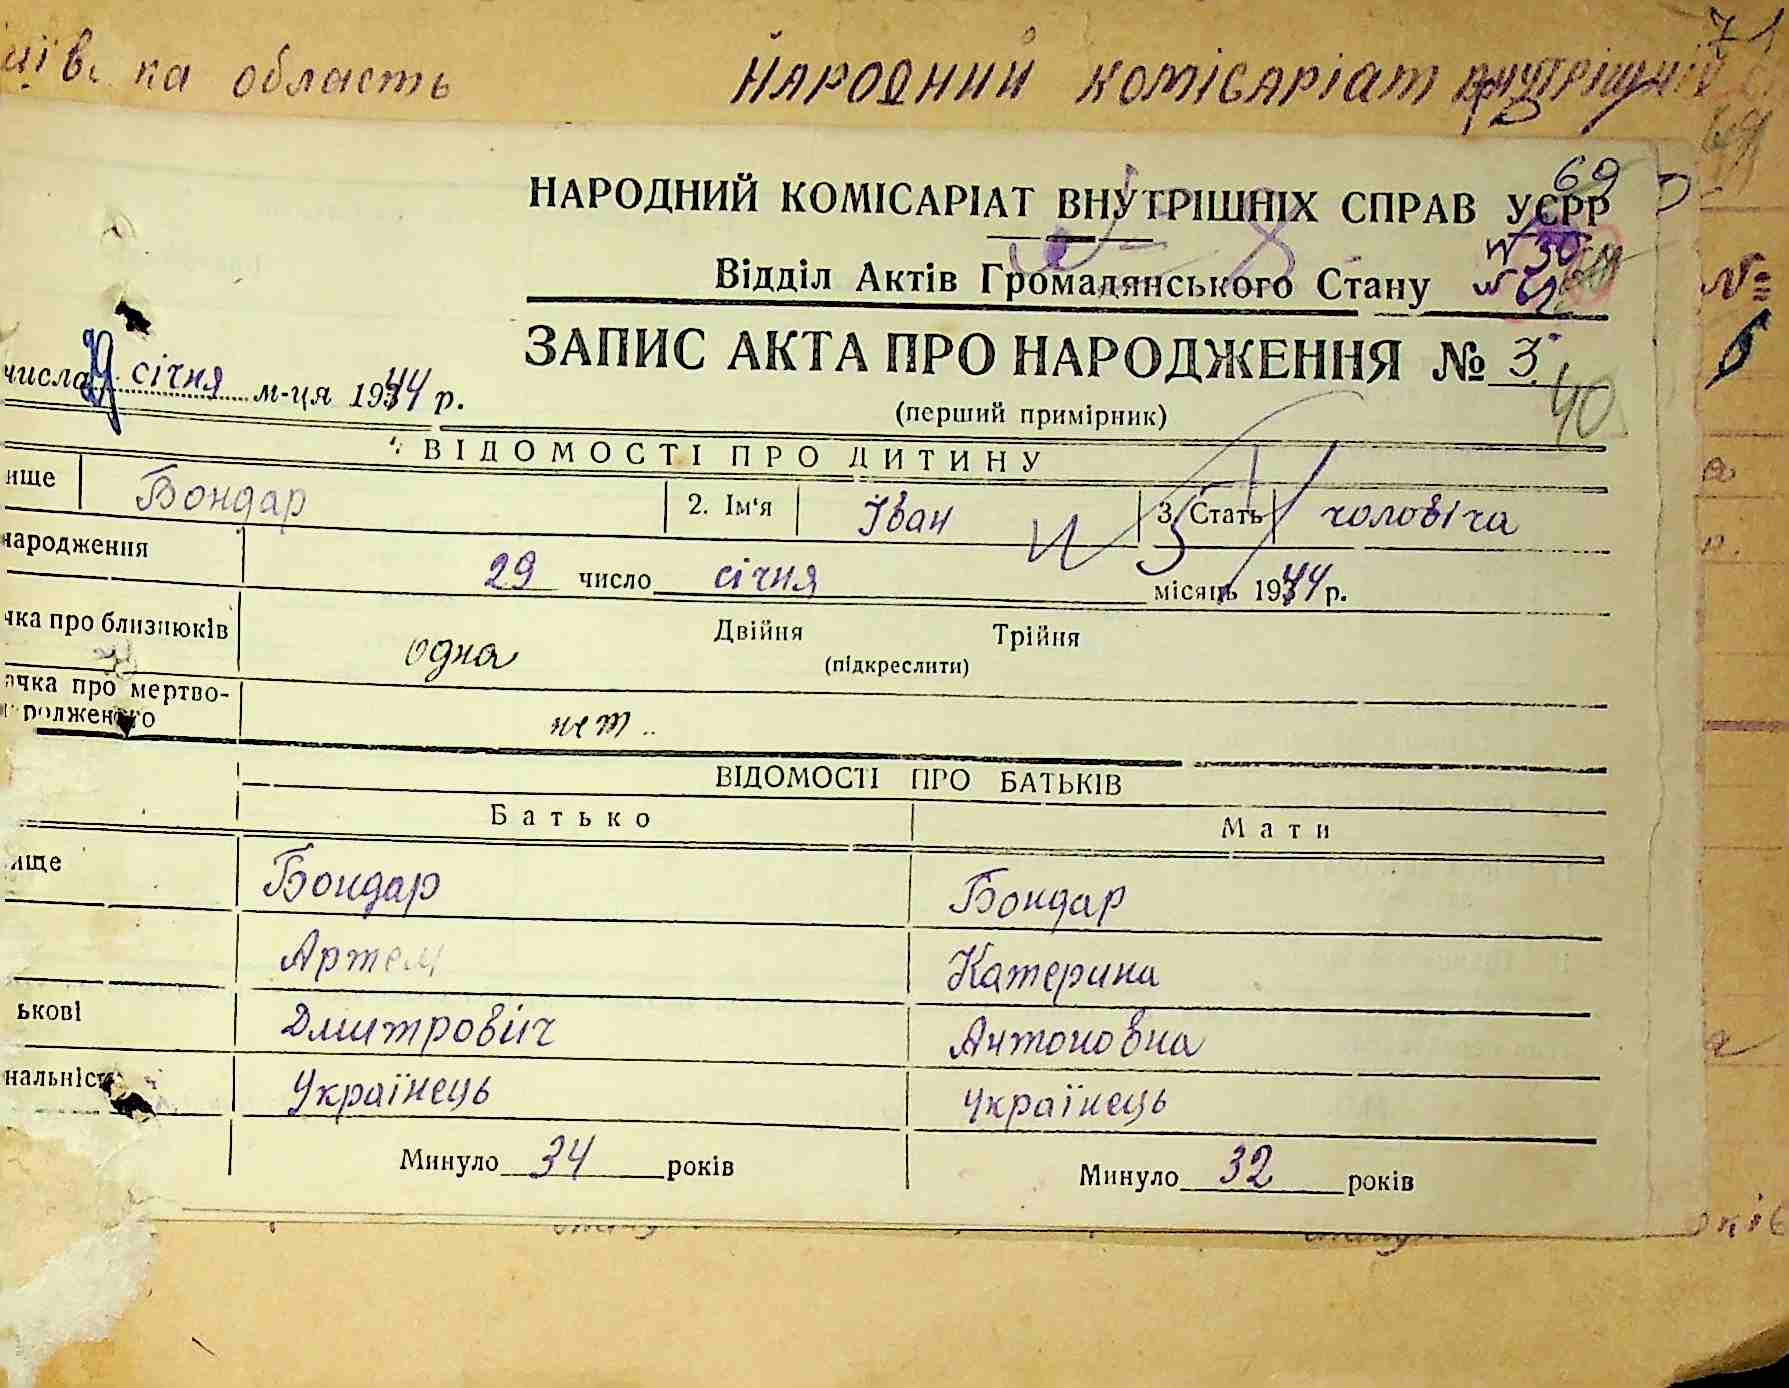 ка область Народний комісаріат внутрішній
71
69
НАРОДНИЙ КОМІСАРІАТ ВНУТРІШНІХ СПРАВ УСРР
69
N 30
Відділ Актів Громадянського Стану
N 62
ЗАПИС АКТА ПРО НАРОДЖЕННЯ № 3
числа січня м-ця 1944 р.
(перший примірник)
40
№
ВІДОМОСТІ ПРО ДИТИНУ
ище Бондар 2. Ім'я Іван 3. Стать чоловіча
народження 29 число січня місяць 1944 р.
чка про близнюків одна Двійня Трійня
(підкреслити)
ачка про мертво-
родженого нет
ВІДОМОСТІ ПРО БАТЬКІВ
Батько Мати
ище Бондар Бондар
Артем Катерина
ькові Дмитровіч Антоновна
нальність Українець Українець
Минуло 34 років Минуло 32 років